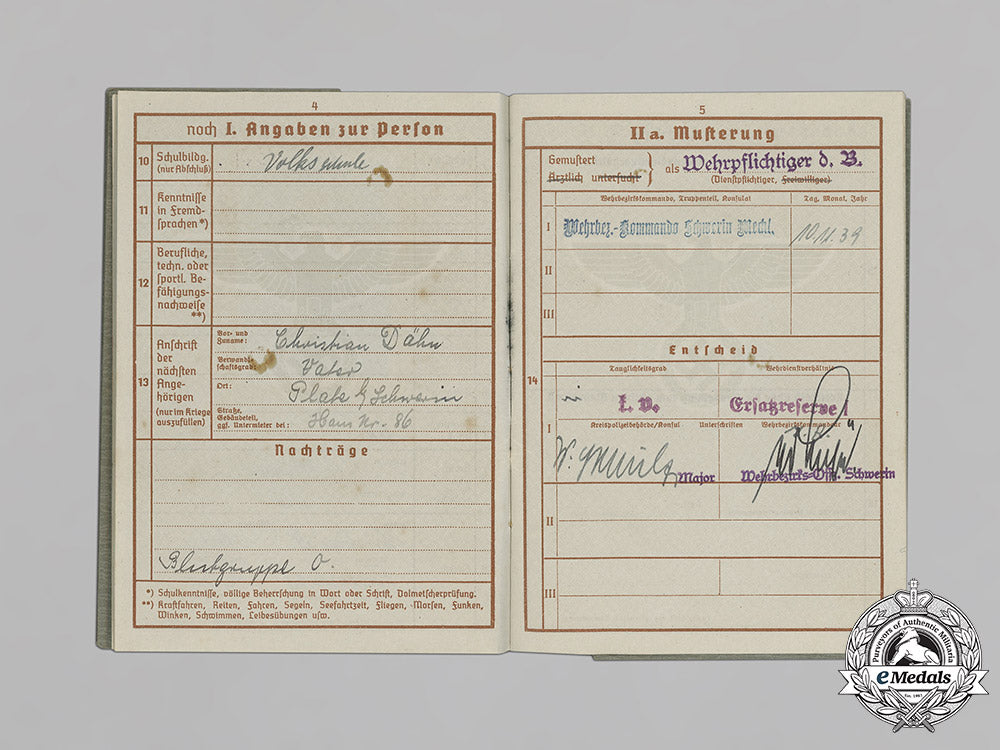 4
noch I. Angaben zur Person
10 Schulbildg. (nur Abschluß)
Volksschule
11 Kenntnisse in Fremd-
sprachen*)
12 Berufliche,
techn. oder
sportl. Be-
fähigungs-
nachweise
**)
13 Anschrift
der
nächsten
Ange-
hörigen
(nur im Kriege
auszufüllen)
Vor- und
Zuname: Christian Dähn
Verwandt-
schaftsgrad: Vater
Ort: Plate b/ Schwerin
Straße,
Gebäudeteil,
ggf. Untermieter bei: Haus Nr. 86
Nachträge
Blutgruppe O.
*) Schulkenntnisse, völlige Beherrschung in Wort oder Schrift, Dolmetscherprüfung.
**) Kraftfahren, Reiten, Fahren, Segeln, Seefahrtzeit, Fliegen, Morsen, Funken,
Winken, Schwimmen, Leibesübungen usw.
5
II a. Musterung
Gemustert
Ärztlich untersucht } als Wehrpflichtiger d. B.
(Dienstpflichtiger, Freiwilliger)
Wehrbezirkskommando, Truppenteil, Konsulat Tag, Monat, Jahr
I Wehrbez.-Kommando Schwerin Meckl. 10.11.39
II
III
Entscheid
14
Tauglichkeitsgrad Wehrdienstverhältnis
I
k. v. Ersatzreserve I
Kreispolizeibehörde/Konsul Unterschriften Wehrbezirkskommandeur
Major Wehrbezirks-Offz. Schwerin
II
III
Purveyors of Authentic Militaria
eMedals